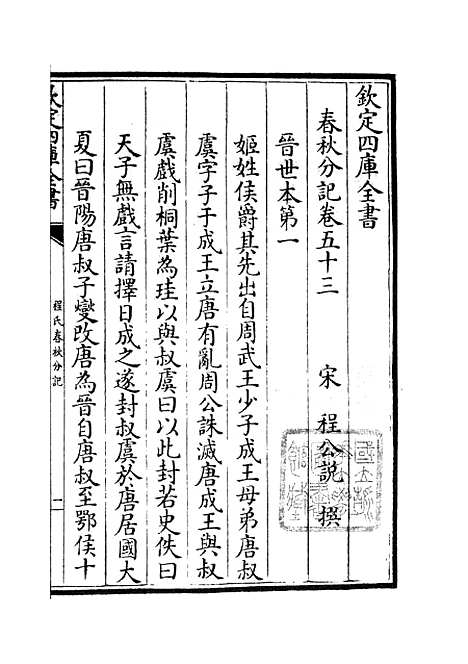 欽定四庫全書
春秋分記卷五十三
宋 程公說 撰
晉世本第一
姬姓侯爵其先出自周武王少子成王母弟唐叔
虞字子于成王立唐有亂周公誅滅唐成王與叔
虞戲削桐葉為珪以與叔虞曰以此封若史佚曰
天子無戲言請擇日成之遂封叔虞於唐居國大
夏曰晉陽唐叔子燮改唐為晉自唐叔至鄂侯十
欽定四庫全書
程氏春秋分記
一